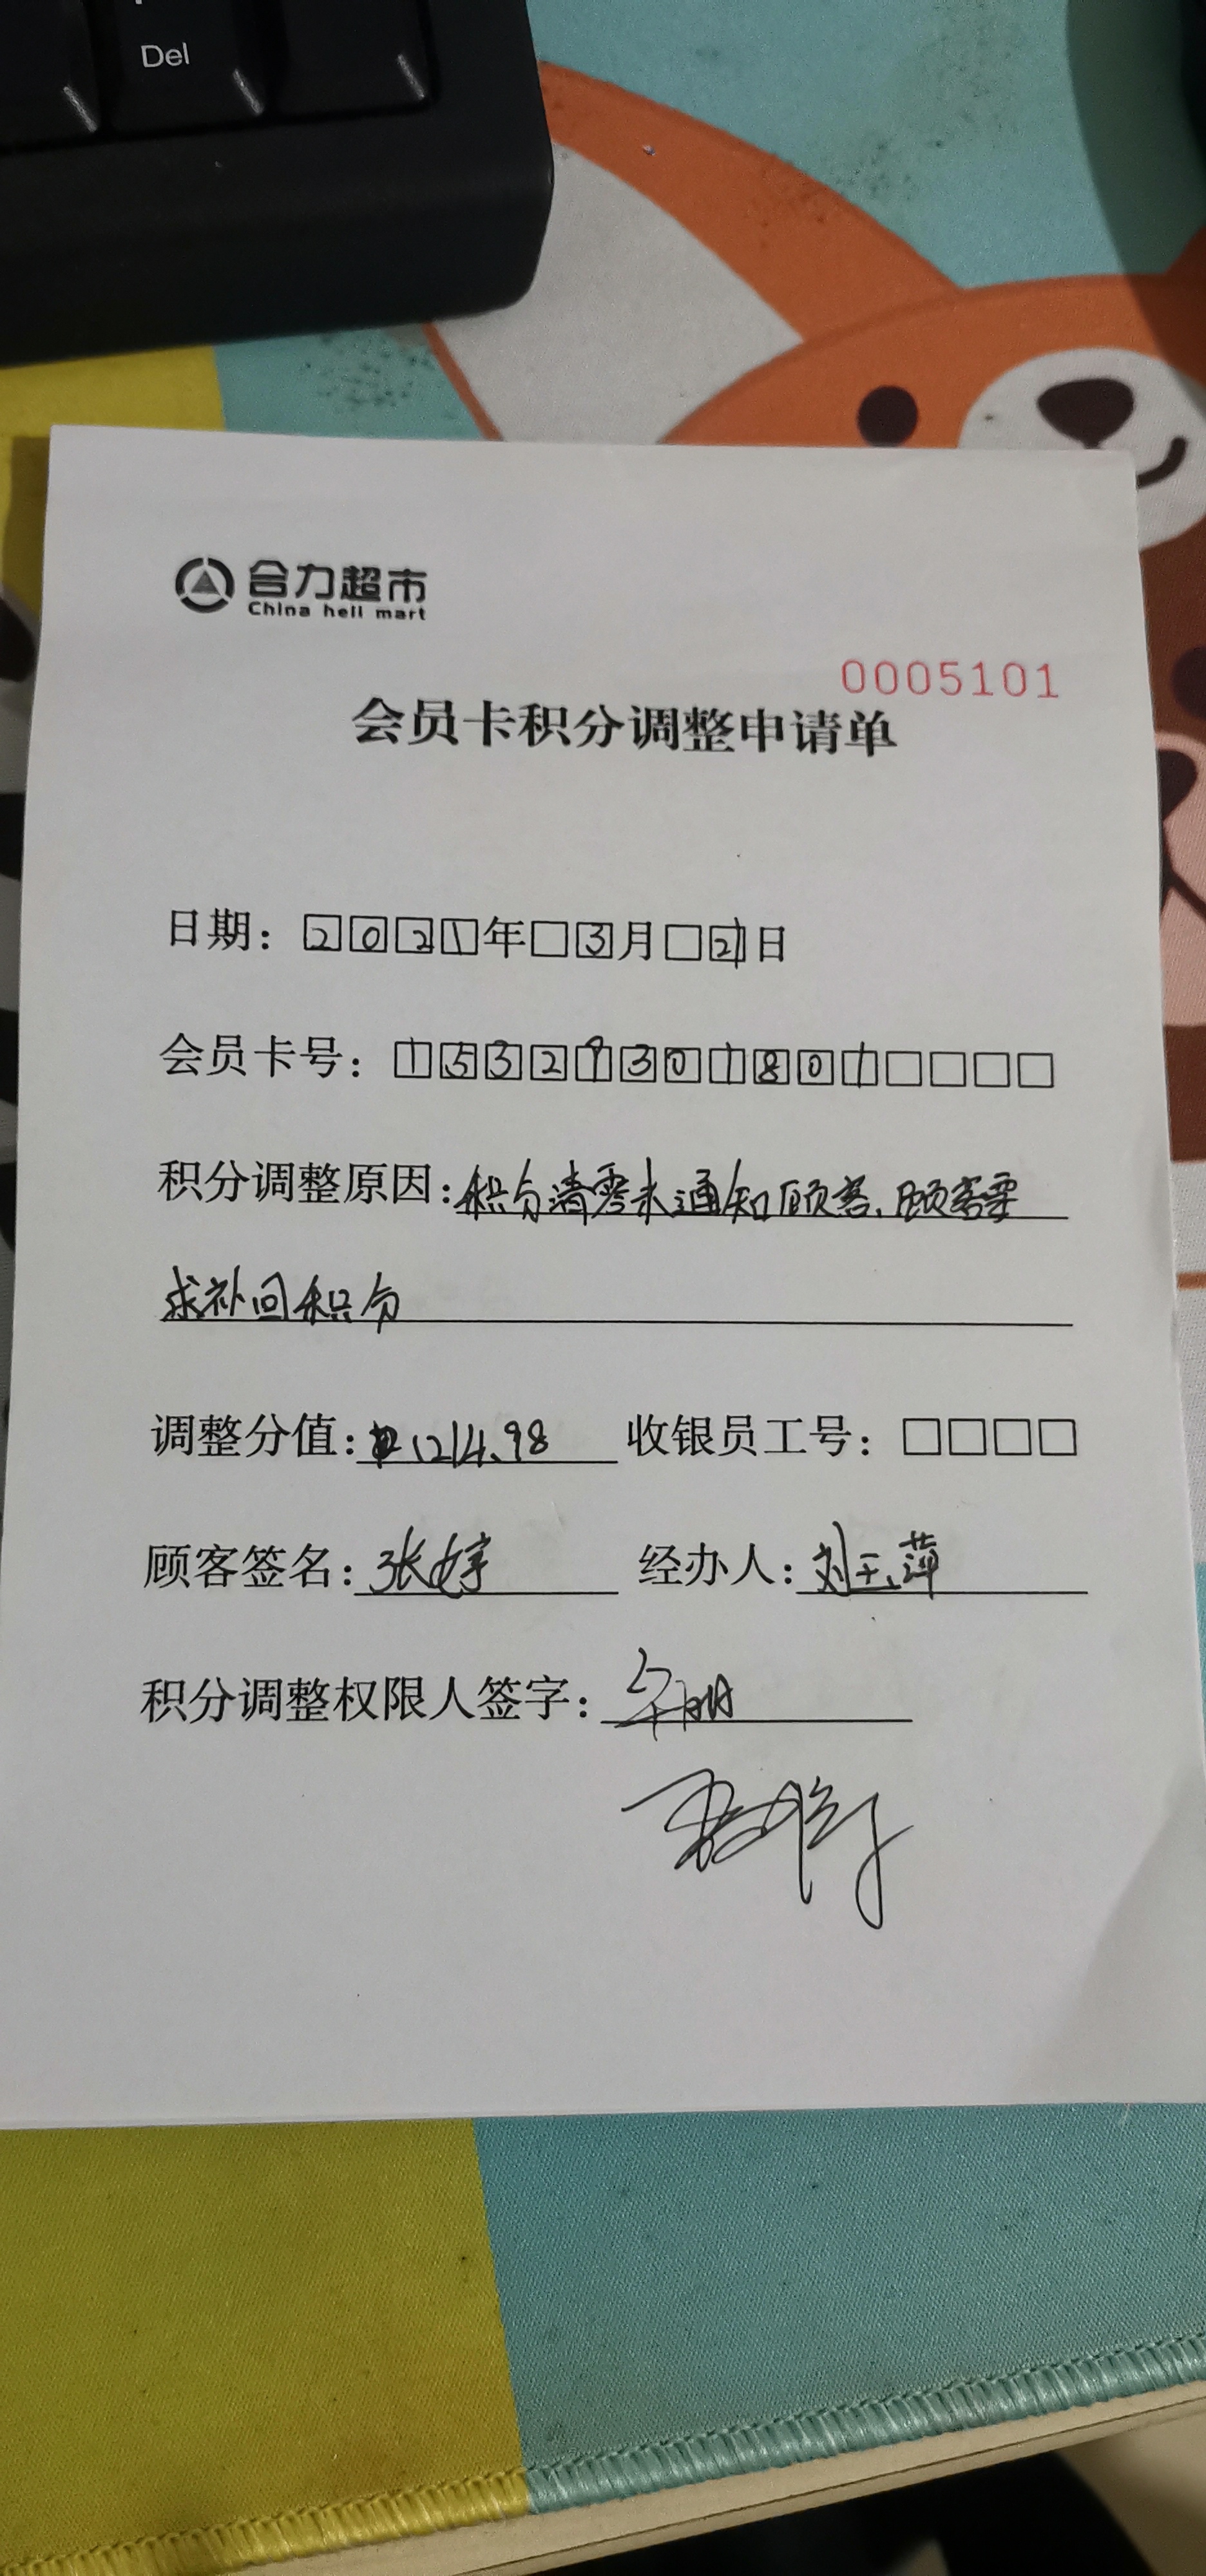 Del
合力超市
China heli mart
0005101
会员卡积分调整申请单
日期：2021年3月21日
会员卡号：15329301801
积分调整原因：积分清零未通知顾客、顾客要
求补回积分
调整分值：1214.98 收银员工号：
顾客签名：张婷 经办人：刘玉萍
积分调整权限人签字：